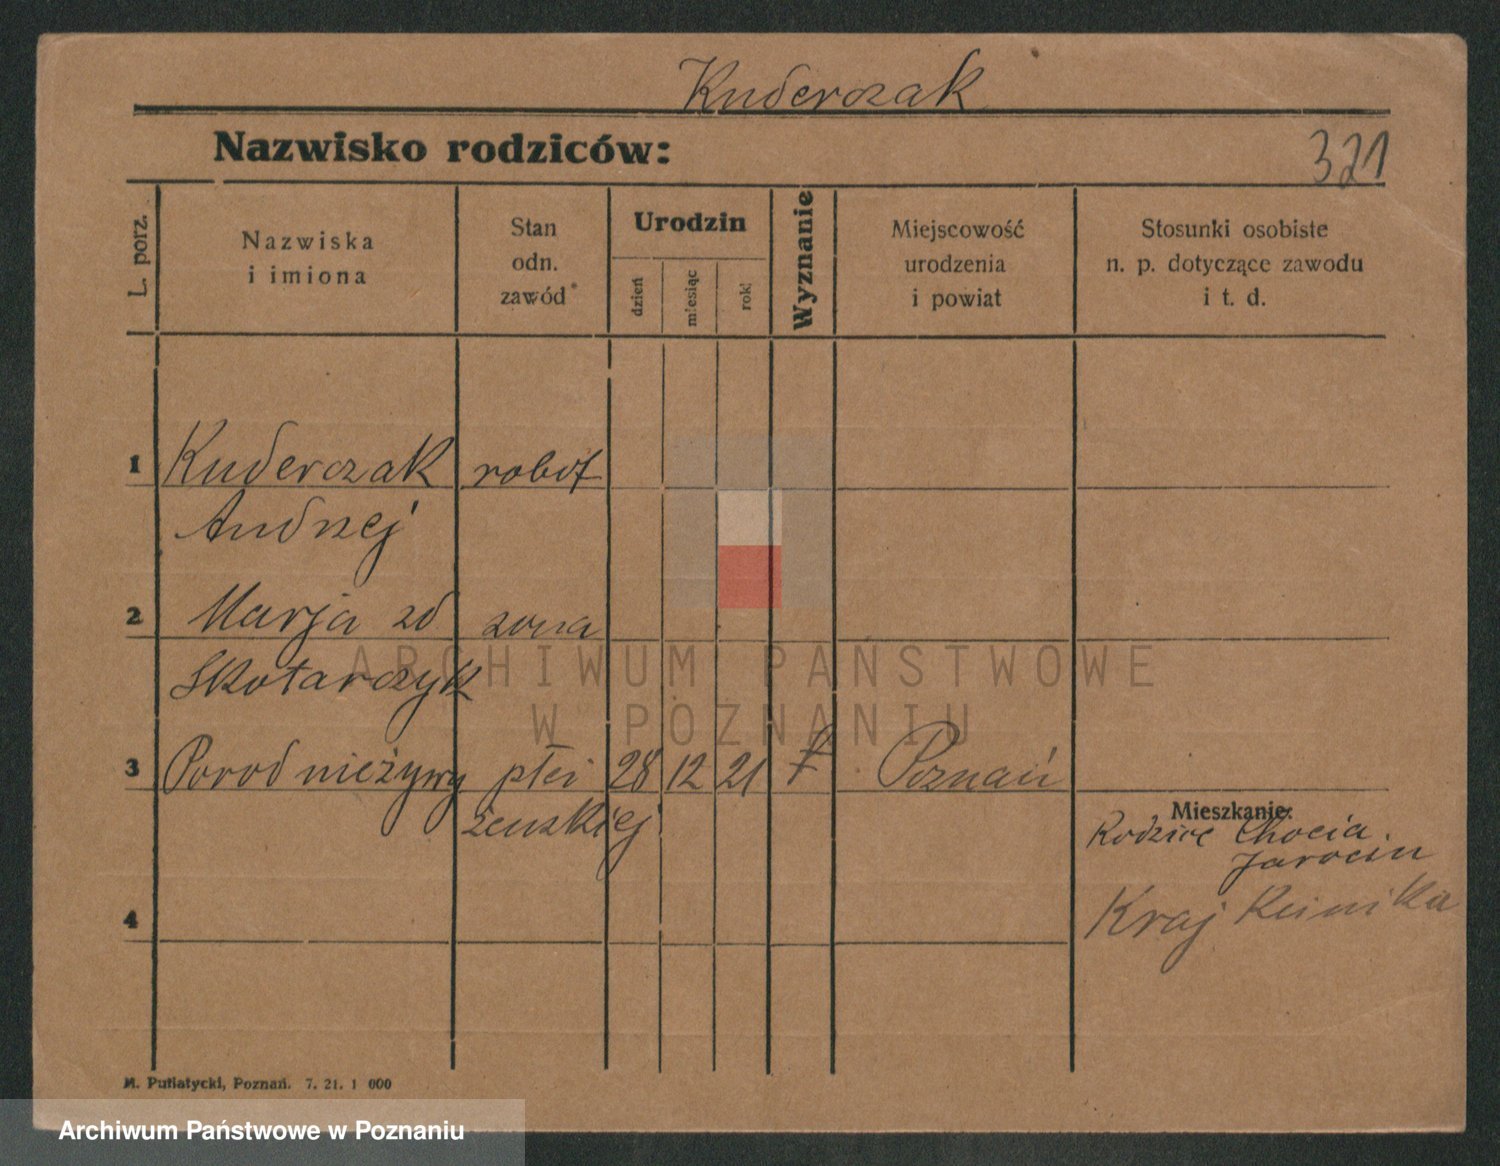 Kuderczak
Nazwisko rodziców:
321
L. porz.
Nazwiska
i imiona
Stan
odn.
zawód
Urodzin
dzień
miesiąc
rok
Wyznanie
Miejscowość
urodzenia
i powiat
Stosunki osobiste
n. p. dotyczące zawodu
i t. d.
1 Kuderczak robot
Andrzej
2 Marja zd zona
Skotarczyk
ARCHIWUM PAŃSTWOWE
W POZNANIU
3 Porod nieżywy płci 28 12 21 Poznań
żenskiej
Mieszkanie:
Rodzice Chocia
Jarocin
4
Kraj
M. Putiatycki, Poznań. 7. 21. 1 000
Archiwum Państwowe w Poznaniu